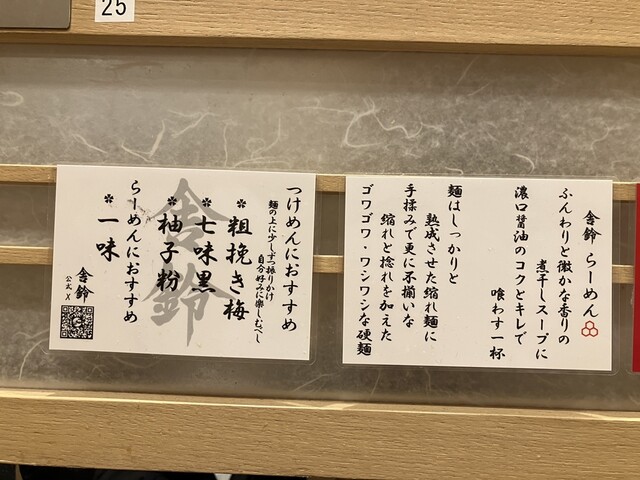 25
舎鈴 らーめん
ふんわりと微かな香りの
煮干しスープに
濃口醤油のコクとキレで
喰わす一杯
麺はしっかりと
熟成させた縮れ麺に
手揉みで更に不揃いな
縮れと捻れを加えた
ゴワゴワ・ワシワシな硬麺
つけめんにおすすめ
麺の上に少しずつ振りかけ
自分好みに楽しむべし
*粗挽き梅
*七味黒
*柚子粉
らーめんにおすすめ
*一味
舎鈴
舎鈴
公式 X